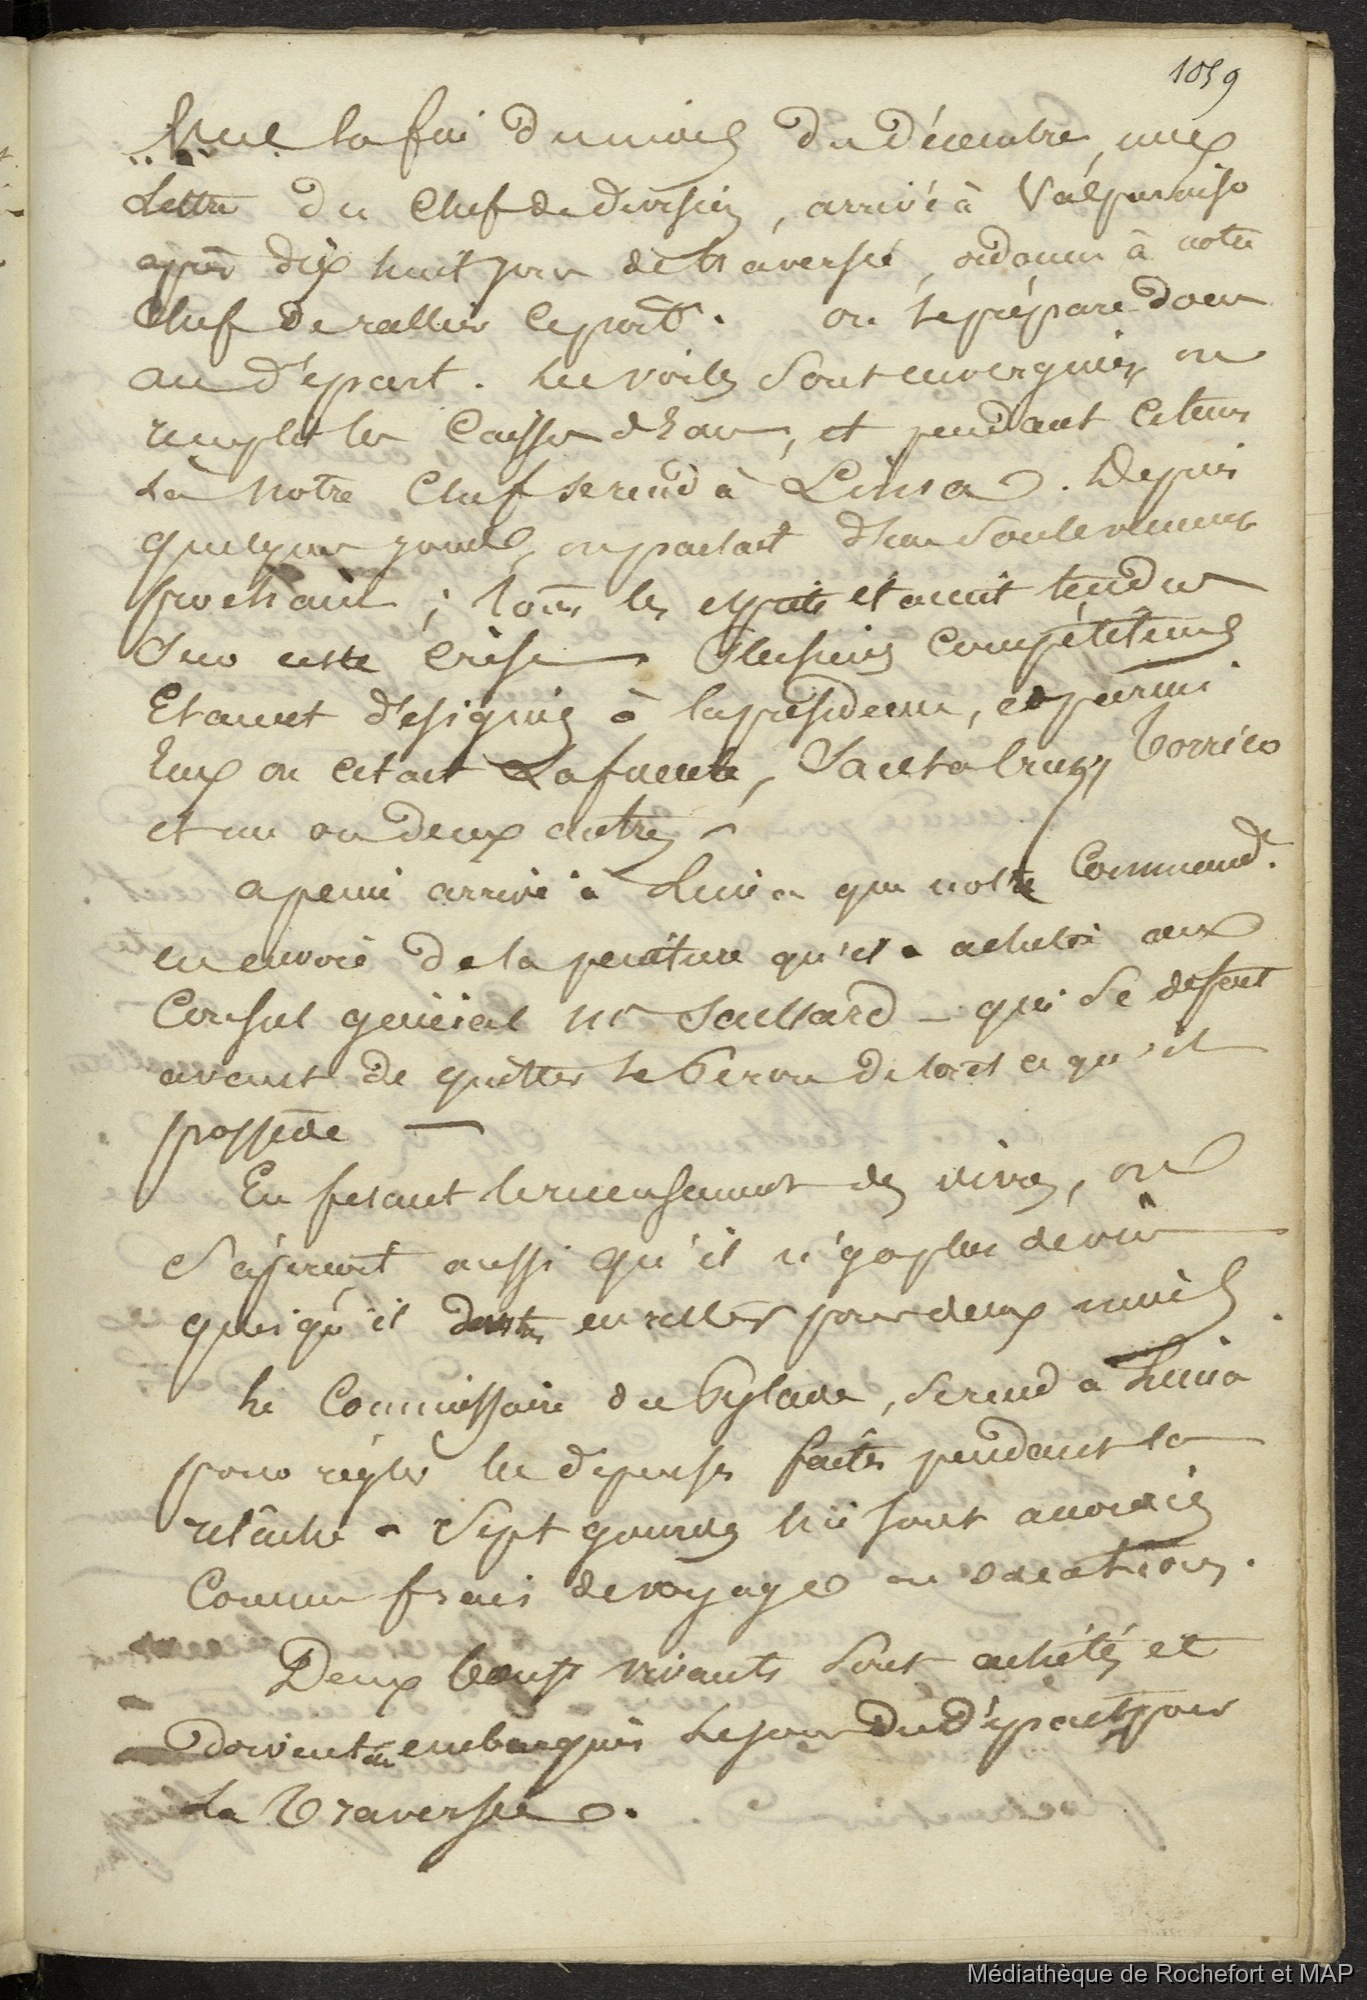 1059
Vers la fin du mois de décembre, une
Lettre du Chef de division, arrivé à Valparaiso
après dix huit jours de traversée, ordonne à notre
Chef de rallier ce port. on se prépare donc
au départ. Les voiles sont enverguées, on
remplit les Caisses d'Eau, et pendant ce tems
là notre Chef se rend à Lima. Depuis
quelques jours, on parlait d'un soulevement
prochain ; tous les esprits etaient tendus
sur cette crise. Plusieurs Compétiteurs
Etaient désignés à la présidence, et parmi
Eux on citait Lafuente, Santa Cruz, Torrico
et un ou deux autres.
a peine arrivé à Lima que notre Command.t
en envoie de la peinture qu'il a achetée au
Consul général Mr Saillard - qui se défait
avant de quitter le Perou de tout ce qu'il
possede —
En fesant le recensement des vivres, on
S'aperçoit aussi qu'il n'y a plus de vin
quoiqu'il dut en rester pour deux mois.
Le Commissaire du Pylade, se rend à Lima
pour régler les dépenses faites pendant la
relâche - Sept gourdes lui sont accordées
Comme frais de voyage ou vacations.
Deux bœufs vivants sont achétés et
doivent être embarqués le jour du départ pour
La Traversée.
Médiathèque de Rochefort et MAP